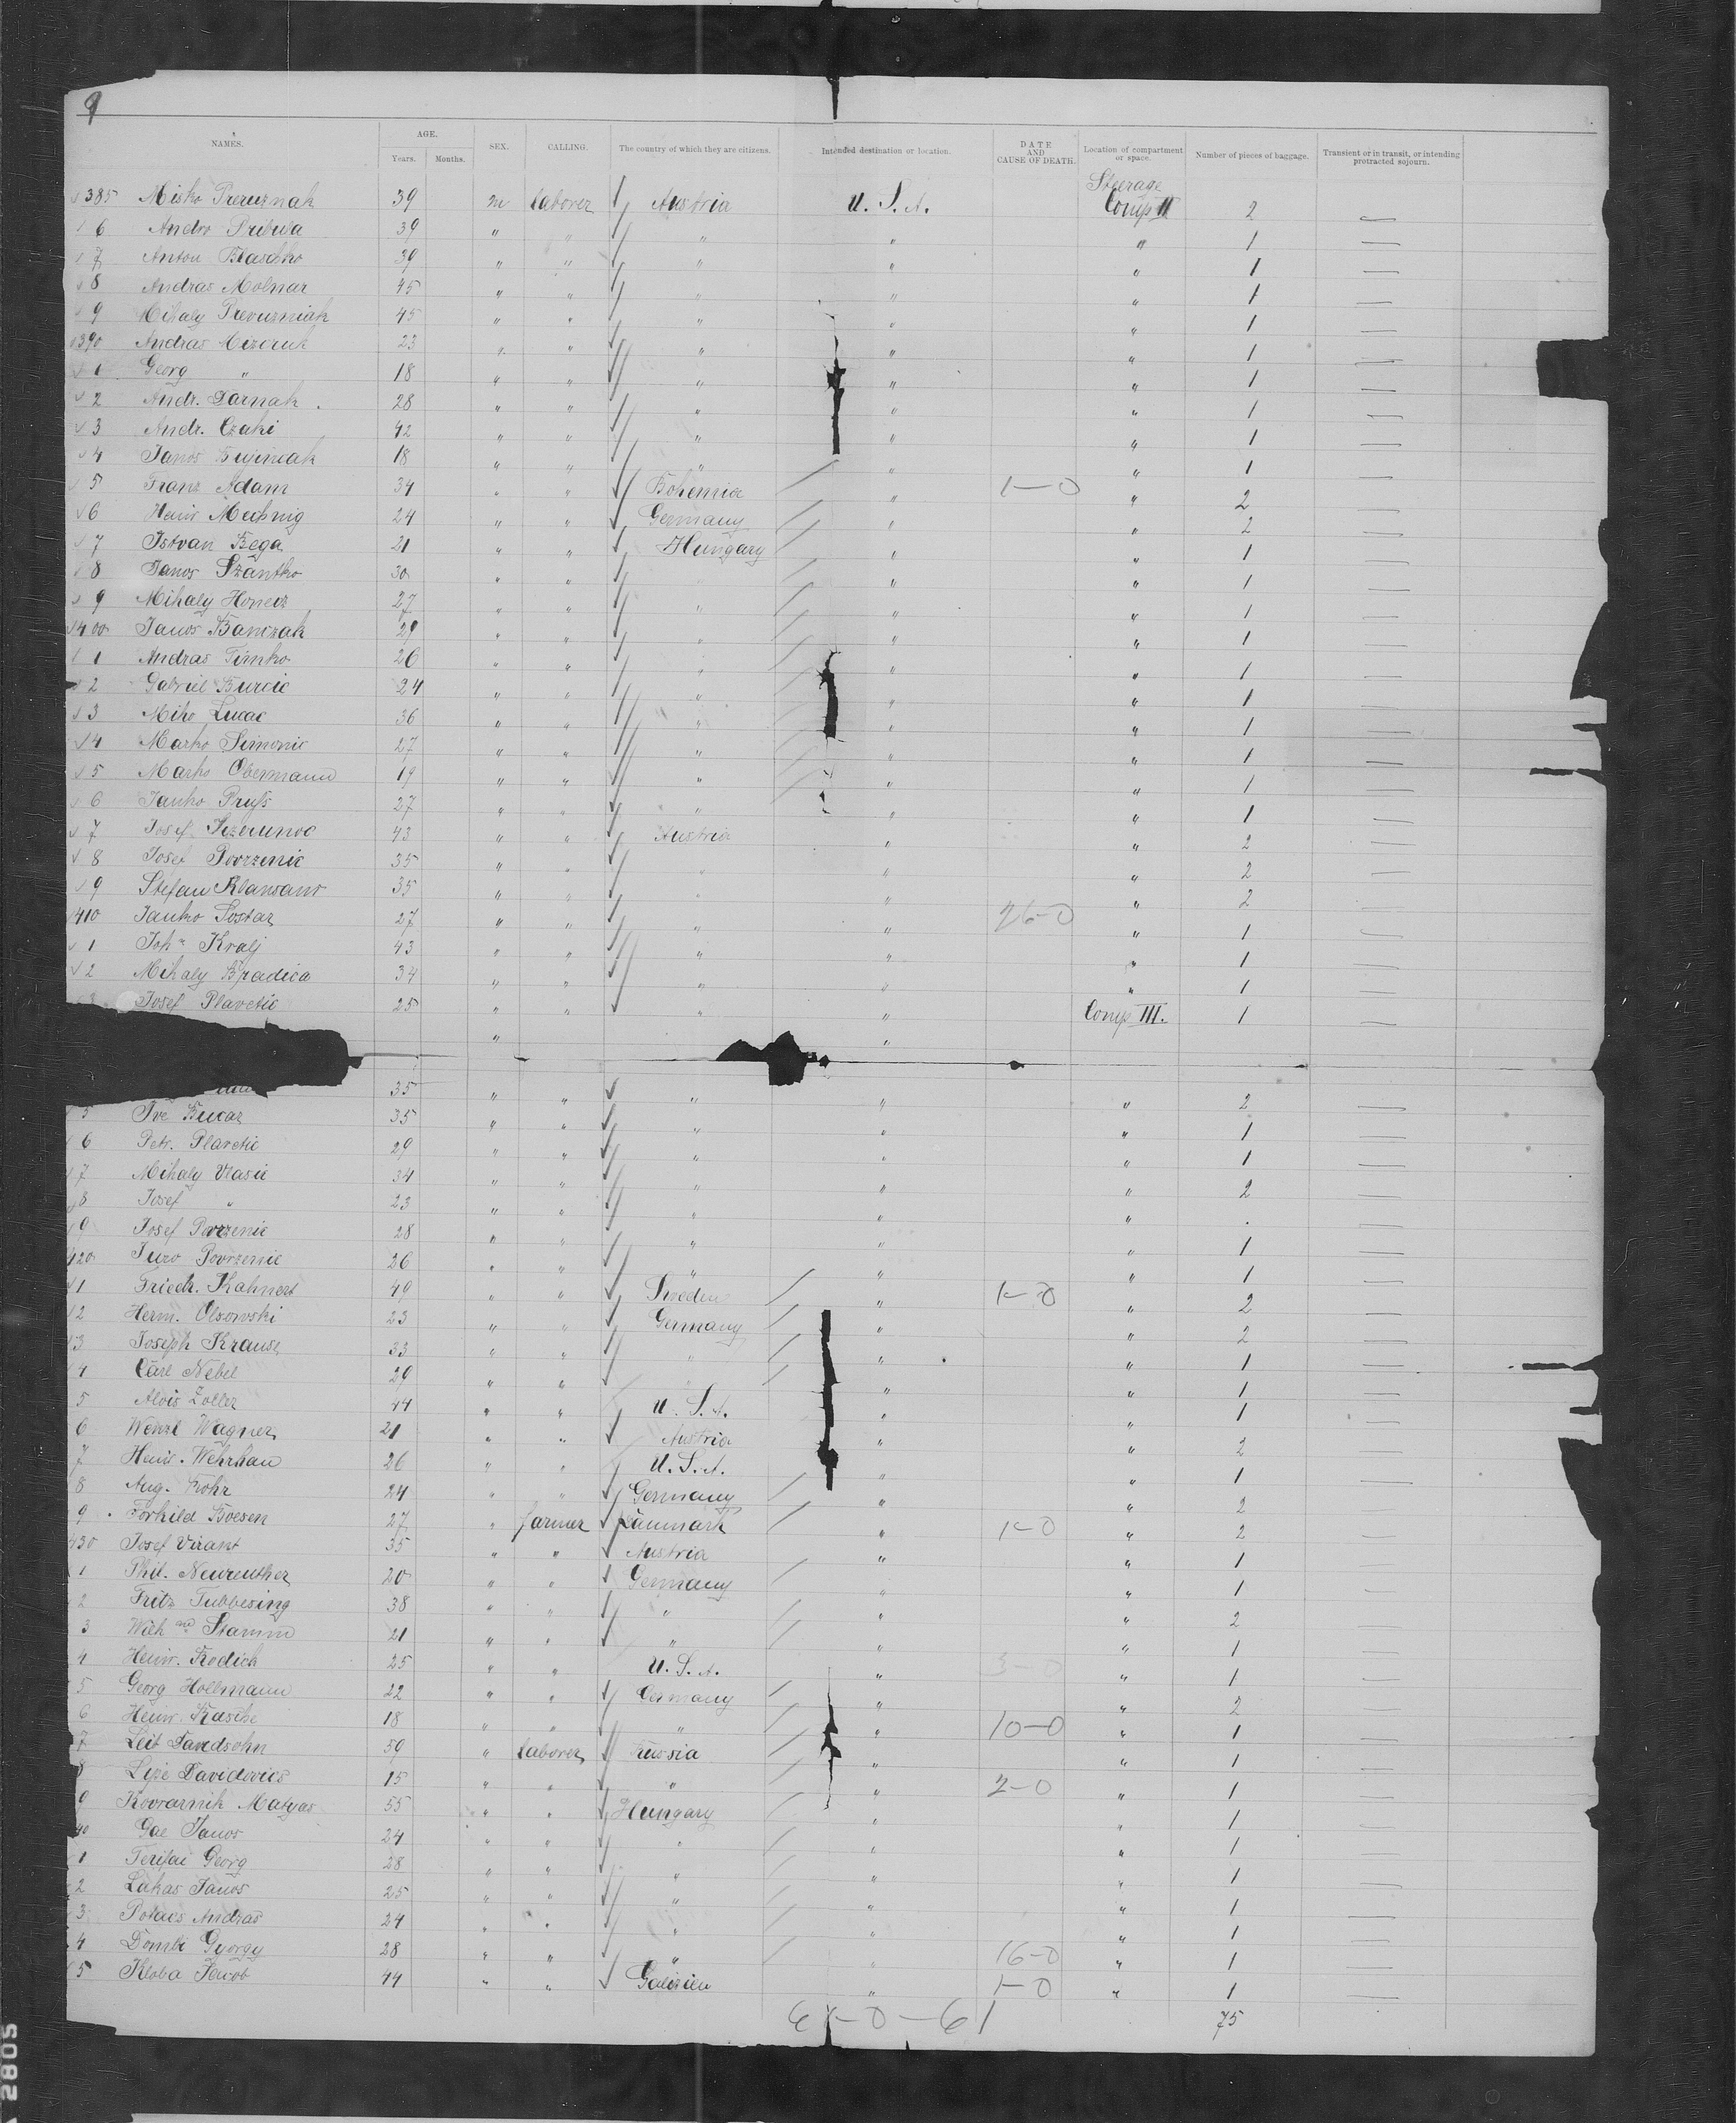 9
NAMES. AGE. Years. Months. SEX. CALLING. The country of which they are citizens. Intended destination or location. DATE AND CAUSE OF DEATH. Location of compartment or space. Number of pieces of baggage. Transient or in transit, or intending protracted sojourn.
Steerage
385 Misko 39 m laborer Austria U. S. A. Comp II 2 —
6 Andro Pribula 39 " " " " " 1 —
7 Anton Blaschko 39 " " " " " 1 —
8 Andras Molnar 45 " " " " " 1 —
9 Mihaly 45 " " " " " 1 —
390 Andras 23 " " " " " 1 —
1 Georg " 18 " " " " " 1 —
2 Andr. Tarnak 28 " " " " " 1 —
3 Andr. Czaki 42 " " " " " 1 —
4 Janos 18 " " " " " 1 —
5 Franz Adam 34 " " Bohemia " 1-0 " 2 —
6 Heinr 24 " " Germany " " 2 —
7 Istvan Bega 21 " " Hungary " " 1 —
8 Janos Szantko 30 " " " " " 1 —
9 Mihaly 27 " " " " " 1 —
400 Janos Banczak 29 " " " " " 1 —
1 Andras Timko 26 " " " " " 1 —
2 Gabriel Burcic 24 " " " " " 1 —
3 Miko Lucac 36 " " " " " 1 —
4 Marko Simonic 27 " " " " " 1 —
5 Marko Obermann 19 " " " " " 1 —
6 Janko Pruss 27 " " " " " 1 —
7 Josef 43 " " Austria " " 2 —
8 Josef Povrzenic 35 " " " " " 2 —
9 Stefan 35 " " " " " 2 —
410 Janko Sostar 27 " " " " 26-0 " 1 —
1 Joh. Kralj 43 " " " " " 1 —
2 Mihaly Bradica 34 " " " " " 1 —
3 Josef Plavetic 25 " " " " Comp III. 1 —
" "
35 " " " " " 2 —
5 Ive Bucar 35 " " " " " 1 —
6 Petr. Plavetic 29 " " " " " 1 —
7 Mihaly Vlasic 34 " " " " " 2 —
8 Josef " 23 " " " " " . —
9 Josef Povrzenic 28 " " " " " 1 —
420 Juro Povrzenic 26 " " " " " 1 —
1 Friedr. Kahnert 49 " " Sweden " 1-0 " 2 —
2 Herm. Olsowski 23 " " Germany " " 2 —
3 Joseph Krause 33 " " " " " 1 —
4 Carl Nebel 29 " " " " " 1 —
5 Alois Zoller 44 " " U. S. A. " " 1 —
6 Wenzl Wagner 21 " " Austria " " 2 —
7 Heinr. Wehrhan 26 " " U. S. A. " " 1 —
8 Aug. Frohr 24 " " Germany " " 2 —
9 Torkild Boesen 27 " farmer Danmark " 1-0 " 2 —
430 Josef Virant 35 " " Austria " " 1 —
1 Phil. Neureuther 20 " " Germany " " 1 —
2 Fritz Tubbesing 38 " " " " " 2 —
3 Stamm 21 " " " " " 1 —
4 Heinr. Frodich 25 " " U. S. A. " 3-0 " 1 —
5 Georg Hollmann 22 " " Germany " " 2 —
6 Heinr. Rasche 18 " " " " 10-0 " 1 —
7 Leib Davidsohn 59 " laborer Russia " " 1 —
8 Davidovics 15 " " " " 2-0 " 1 —
9 Matyas 55 " " Hungary " " 1 —
40 Gal Janos 24 " " " " " 1 —
1 Georg 28 " " " " " 1 —
2 Lakas Janos 25 " " " " " 1 —
3 Andras 24 " " " " " 1 —
4 Dombi Gyorgy 28 " " " " 16-0 " 1 —
5 Kloba Jacob 44 " " Galizien " 1-0 " 1 —
61-0-61 75
2805